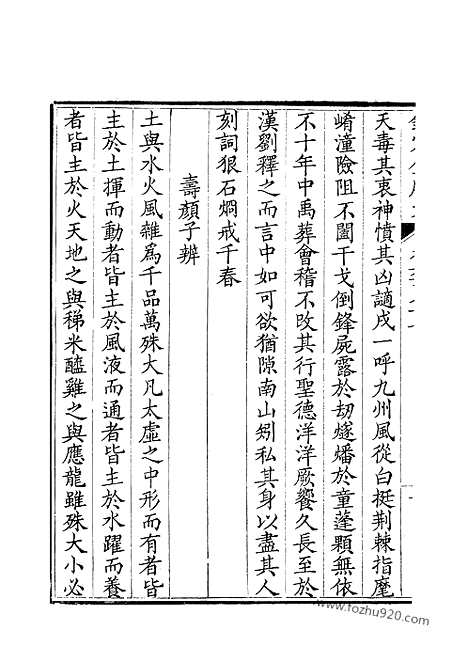 天毒其衷神憤其凶讁戍一呼九州風從白挺荆棘指麾
崤潼險阻不闔干戈倒鋒屍露於刼燧燔於童蓬顆無依
不十年中禹葬會稽不改其行聖德洋洋厥饗久長至於
漢劉釋之而言中如可欲猶隙南山矧私其身以盡其人
刻詞狠石烱戒千春
壽顔子辨
土與水火風雜爲千品萬殊大凡太虛之中形而有者皆
主於土揮而動者皆主於風液而通者皆主於水躍而養
者皆主於火天地之與稊米醯雞之與應龍雖殊大小必
www.fozhu920.com